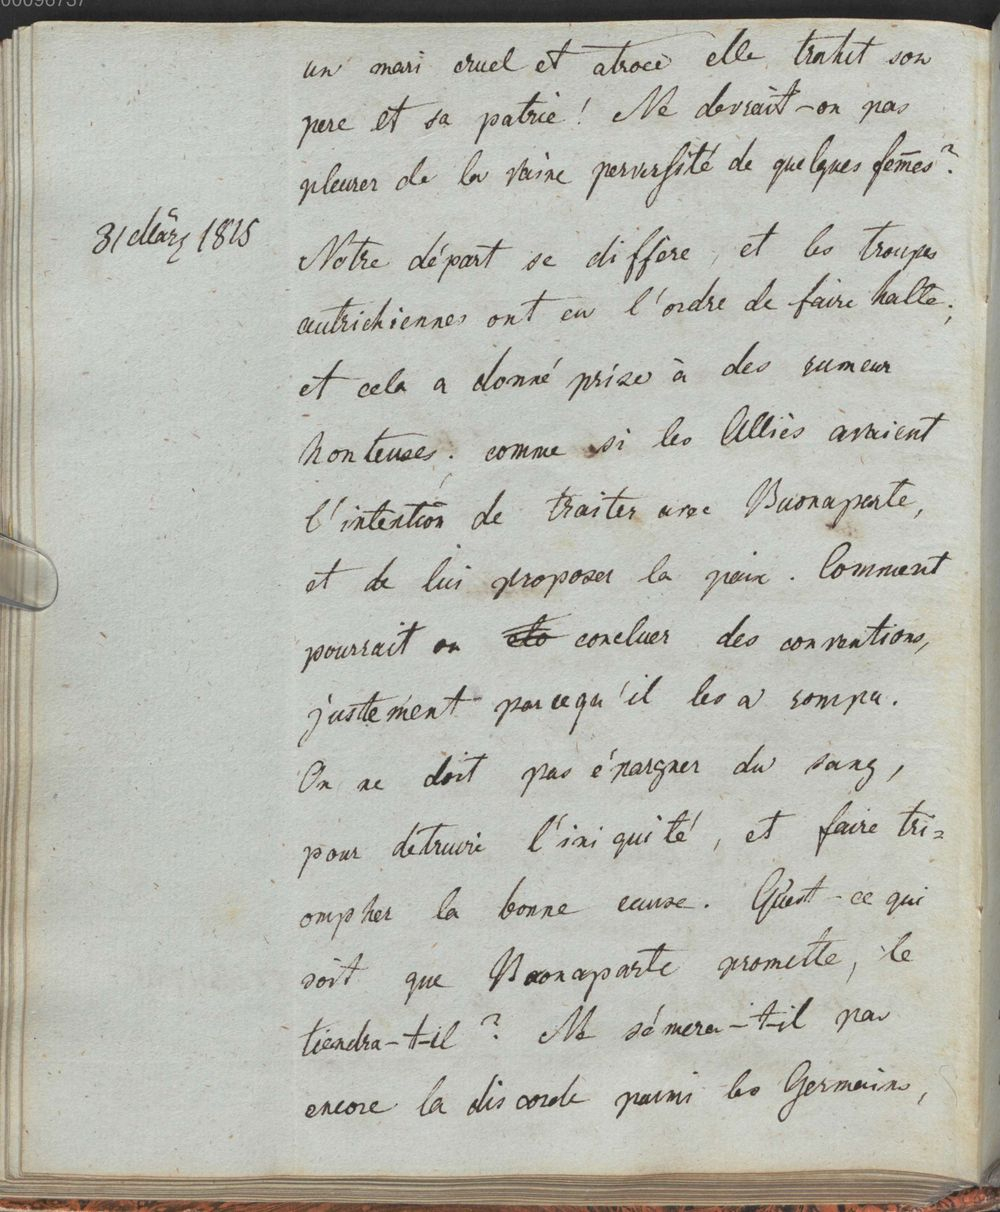 00096737
un mari cruel et atroce elle trahit son
pere et sa patrie! Ne devrait-on pas
pleurer de la vaine perversité de quelques fem̄es?
31 März 1815
Notre départ se diffère, et les troupes
autrichiennes ont eu l'ordre de faire halte;
et cela a donné prise à des rumeur
honteuses. comme si les Alliès avaient
l'intention de traiter avec Buonaparte,
et de lui proposer la paix. Comment
pourrait on concluer des conventions,
justement parcequ'il les a rompu.
On ne doit pas épargner du sang,
pour detruire l'iniquité, et faire tri=
ompher la bonne cause. Quest-ce qui
soit que Buonaparte promette, le
tiendra-t-il? Ne sémera-t-il pas
encore la discorde parmi les Germains,